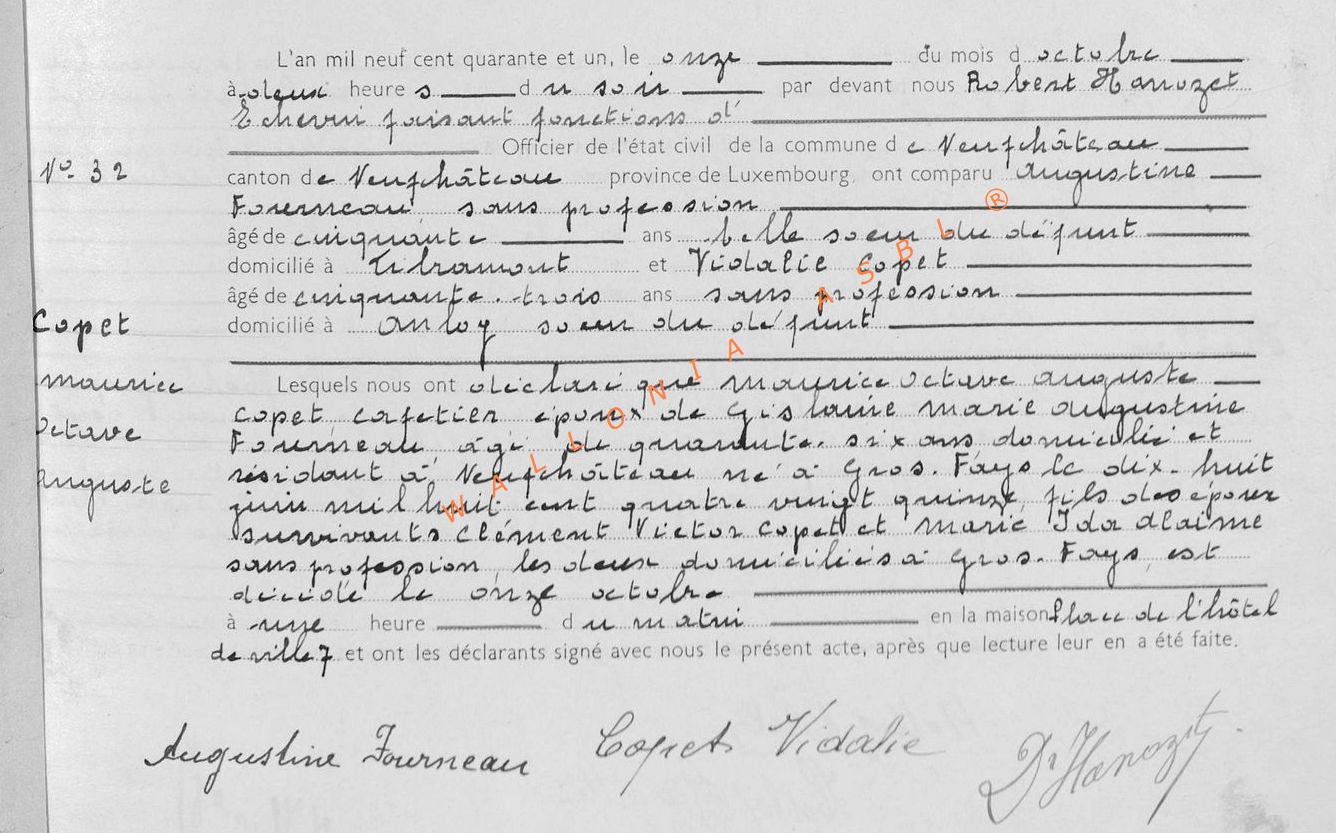 L'an mil neuf cent quarante et un, le onze du mois d octobre
à deux heure s d u soir par devant nous Robert Hanozet
Echevin faisant fonctions d'
Officier de l'état civil de la commune d e Neufchâteau
N° 32
canton de Neufchâteau province de Luxembourg, ont comparu Augustine
Fourneau, sans profession
âgé de cinquante ans belle soeur du défunt
domicilié à Libramont et Vidalie Copet
âgé de cinquante-trois ans sans profession
Copet
domicilié à Anloy soeur du défunt
Maurice
Lesquels nous ont déclaré que Maurice Octave Auguste
Copet cafetier époux de Gislaine Marie Augustine
Octave
Fourneau âgé de quarante-six ans domicilié et
résidant à Neufchâteau né à Gros-Fays le dix-huit
Auguste
juin mil huit cent quatre vingt quinze, fils des époux
survivants Clément Victor Copet et Marie Ida Dlaime
sans profession, les deux domiciliés à Gros-Fays, est
décédé le onze octobre
à une heure d u matin en la maison Place de l'hôtel
de ville 7 et ont les déclarants signé avec nous le présent acte, après que lecture leur en a été faite.
Augustine Fourneau Copet Vidalie Dr Hanozet
WALLONIA ASBL ®